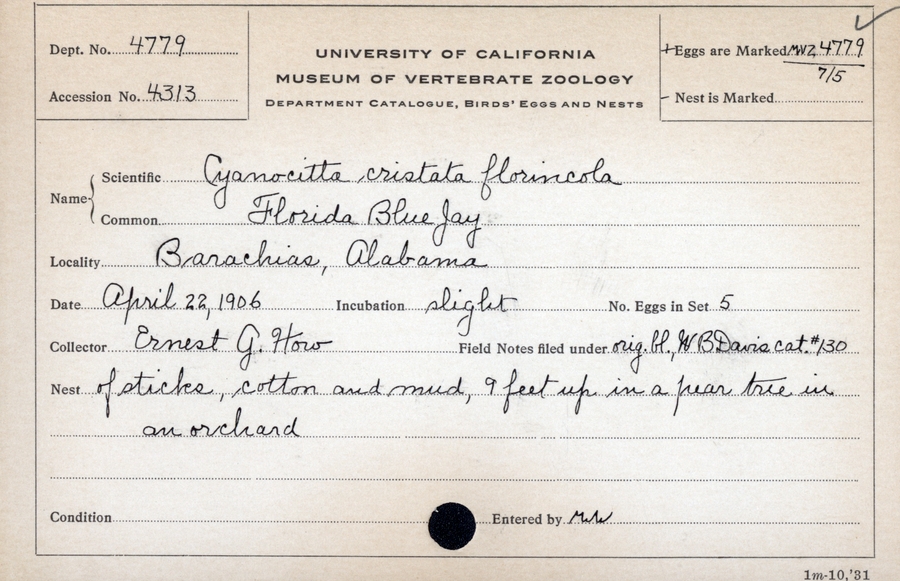 Dept. No. 4779
Accession No. 4313
UNIVERSITY OF CALIFORNIA
MUSEUM OF VERTEBRATE ZOOLOGY
DEPARTMENT CATALOGUE, BIRDS' EGGS AND NESTS
+Eggs are Marked MVZ 4779
7/5
- Nest is Marked
Name
Scientific Cyanocitta cristata florincola
Common Florida Blue Jay
Locality Barachias, Alabama
Date April 22, 1906 Incubation slight No. Eggs in Set 5
Collector Ernest G. How Field Notes filed under orig. bl., W B Davis cat. #130
Nest of sticks, cotton and mud, 9 feet up in a pear tree in
an orchard
Condition Entered by
1m-10,'31